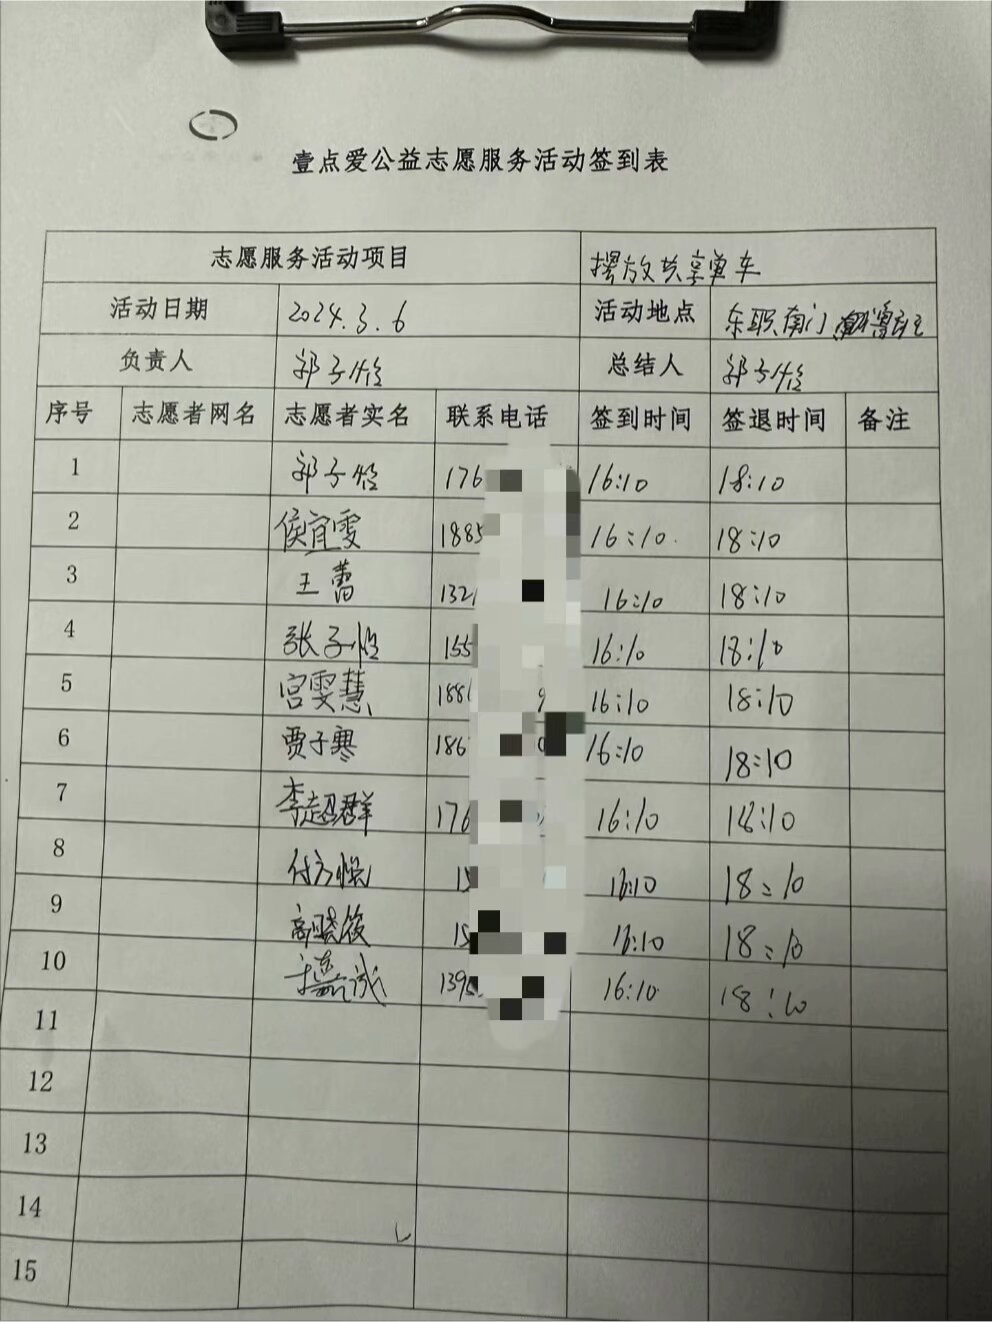 壹点爱公益志愿服务活动签到表
志愿服务活动项目 摆放共享单车
活动日期 2024.3.6 活动地点 东职南门
负责人 郭子怡 总结人 郭子怡
序号 志愿者网名 志愿者实名 联系电话 签到时间 签退时间 备注
1 郭子怡 176 16:10 18:10
2 侯宜雯 1885 16:10 18:10
3 王蕾 132 16:10 18:10
4 张子怡 155 16:10 18:10
5 宫雯慧 188 16:10 18:10
6 贾子寒 186 16:10 18:10
7 李超群 176 16:10 18:10
8 15 16:10 18:10
9 15 16:10 18:10
10 139 16:10 18:10
11
12
13
14
15